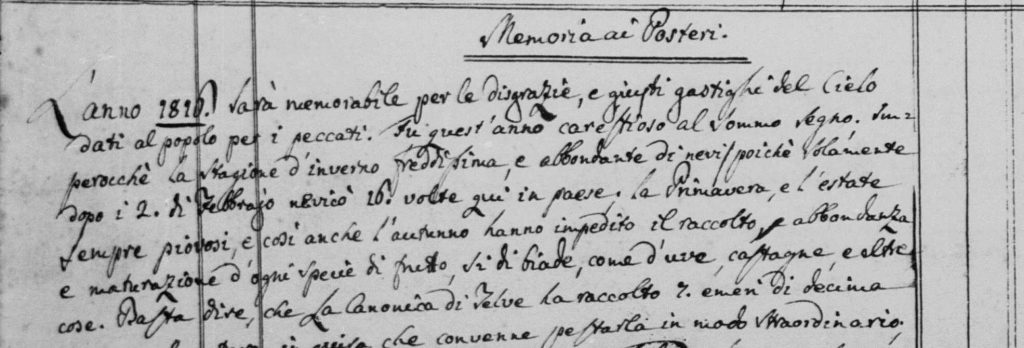 Memoria ai Posteri.
L'anno 1816. Sarà memorabile per le disgrazie, e giusti gastighi del Cielo
dati al popolo per i peccati. Fù quest'anno carestioso al sommo segno. Im=
perocchè la stagione d'inverno freddissima, e abbondante di nevi, poichè solamente
dopo i 2. di Febbrajo nevicò 16. volte qui in paese, la Primavera, e l'estate
sempre piovosi, e così anche l'autunno hanno impedito il raccolto, e abbondanza
e maturazione d'ogni specie di frutto, sì di biade, come d'uve, castagne e altre
cose. Basta dire, che la Canonica di Telve ha raccolto 7. emeri di decima
che convenne pestarla in modo straordinario.